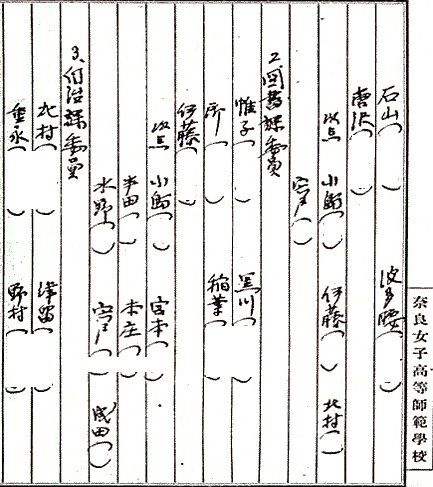 石山( ) 波多腰( )
唐沢( )
次点 小師( ) 伊藤( ) 北村( )
宍戸( )
2、図書課委員
惟子( ) 黒川( )
所( ) 稲葉( )
伊藤( )
次点 小師( ) 宮本( )
半田( ) 本庄( )
水野( ) 宍戸( ) 成田( )
3、自治課委員
北村( ) 津留( )
重永( ) 野村( )
奈良女子高等師範學校